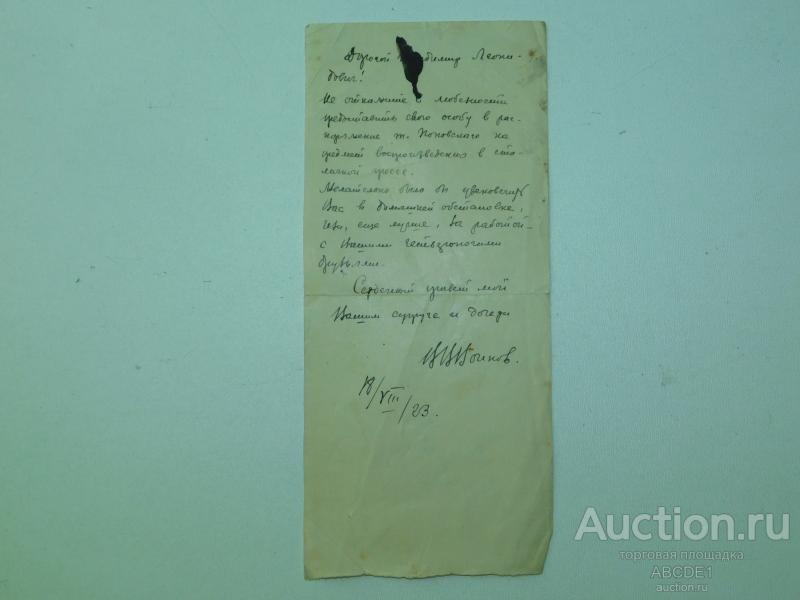 Дорогой Владимир Леони-
дович!
Не откажите в любезности
предоставить свою особу в рас-
поряжение т. Поповского на
предмет воспроизведения в сто-
личной прессе.
Желательно было бы увековечить
Вас в домашней обстановке,
или, еще лучше, за работой
с Вашими четвероногими
друзьями.
Сердечный привет мой
Вашим супруге и дочери
18/VIII/23.
Auction.ru
торговая площадка
ABCDE1
auction.ru